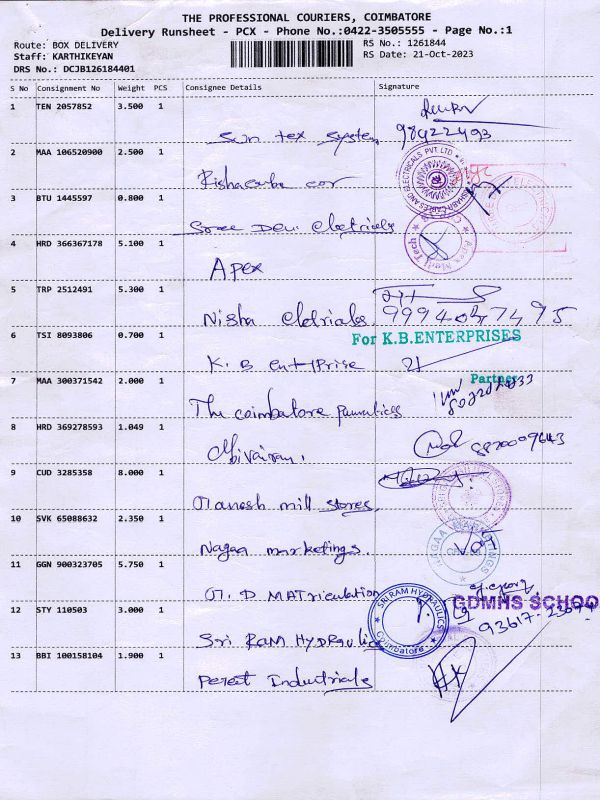 THE PROFESSIONAL COURIERS, COIMBATORE
Delivery Runsheet - PCX - Phone No.:0422-3505555 - Page No.:1
Route: BOX DELIVERY
Staff: KARTHIKEYAN
DRS No.: DCJB126184401
RS No.: 1261844
RS Date: 21-Oct-2023
S No Consignment No Weight PCS Consignee Details Signature
1 TEN 2057852 3.500 1
Sun tex system
2 MAA 106520900 2.500 1
3 BTU 1445597 0.800 1
Sree Devi
4 HRD 366367178 5.100 1
Apex
5 TRP 2512491 5.300 1
Nisha
6 TSI 8093806 0.700 1
For K.B.ENTERPRISES
K. B
Partner
7 MAA 300371542 2.000 1
The coimbatore
8 HRD 369278593 1.049 1
9 CUD 3285358 8.000 1
mill stores,
10 SVK 65088632 2.350 1
Nagaa marketings.
11 GGN 900323705 5.750 1
D MATriculation
GDMHS SCHOO
12 STY 110503 3.000 1
SRI RAM HYDRAULICS
Coimbatore
Sri RAM HYDRaulics
13 BBI 100158104 1.900 1
Industrials